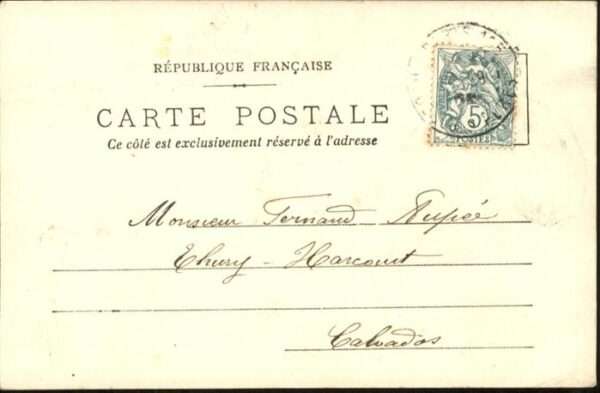 RÉPUBLIQUE FRANÇAISE
CARTE POSTALE
Ce côté est exclusivement réservé à l'adresse
5
POSTES
Monsieur Fernand
Thury-Harcourt
Calvados